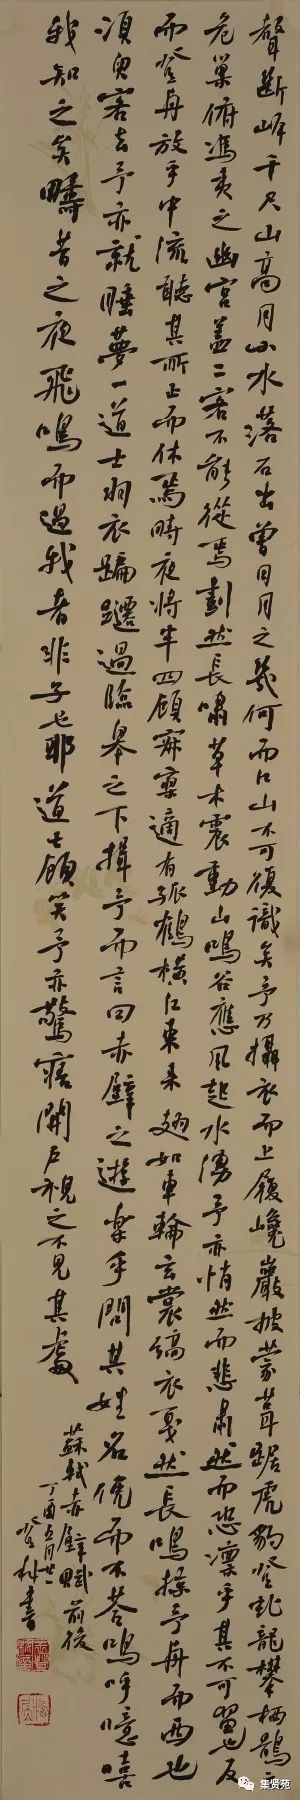 聲斷岸千尺山高月小水落石出曾日月之幾何而江山不可復識矣予乃攝衣而上履巉巖披蒙茸踞虎豹登虬龍攀栖鶻之
危巢俯馮夷之幽宮蓋二客不能從焉劃然長嘯草木震動山鳴谷應風起水湧予亦悄然而悲肅然而恐凜乎其不可留也反
而登舟放乎中流聽其所止而休焉時夜將半四顧寂寥適有孤鶴橫江東來翅如車輪玄裳縞衣戛然長鳴掠予舟而西也
須臾客去予亦就睡夢一道士羽衣蹁躚過臨皋之下揖予而言曰赤壁之遊樂乎問其姓名俛而不答嗚呼噫嘻
我知之矣疇昔之夜飛鳴而過我者非子也耶道士顧笑予亦驚寤開戶視之不見其處
蘇軾赤壁賦前後
丁酉五月廿
登科書
集贤苑